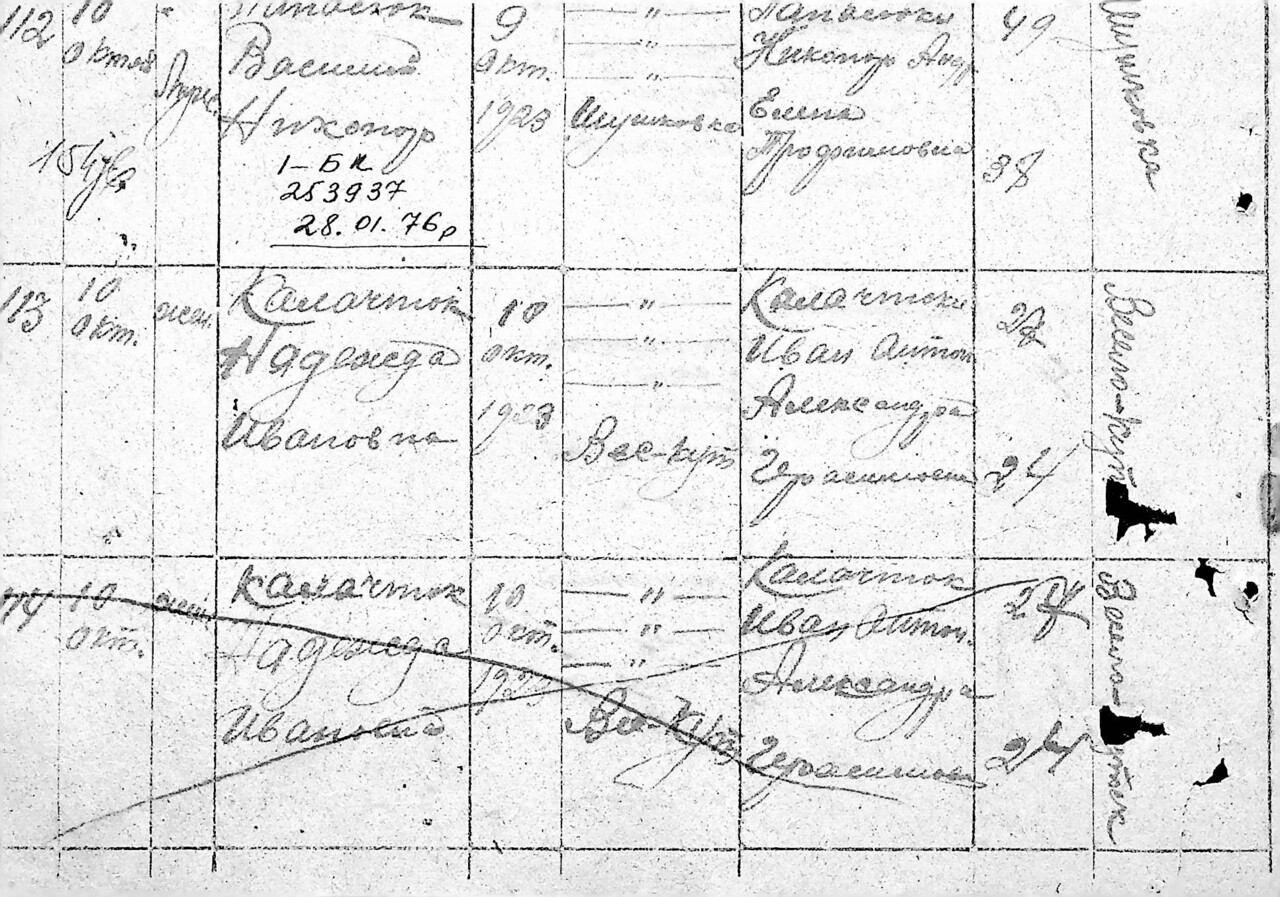 112
10
Октяб
Василий
Никопор
1-БК
253937
28.01.76р
9
Окт.
1923
— " —
— " —
— " —
Шушковка
Никопор Андр
Елена
Трофимовна
49
38
Шушковка
113
10
Окт.
жен.
Калачтюк
Надежда
Ивановна
10
Окт.
1923
— " —
— " —
— " —
Вес-кут
Калачтюки
Иван Антон
Александра
Герасимовна
24
Весело-кут
114
10
Окт.
жен.
Калачтюк
Надежда
10
Окт.
— " —
— " —
— " —
Вес-Кут
Калачтюк
Иван Антон.
Александра
Герасимовн
24